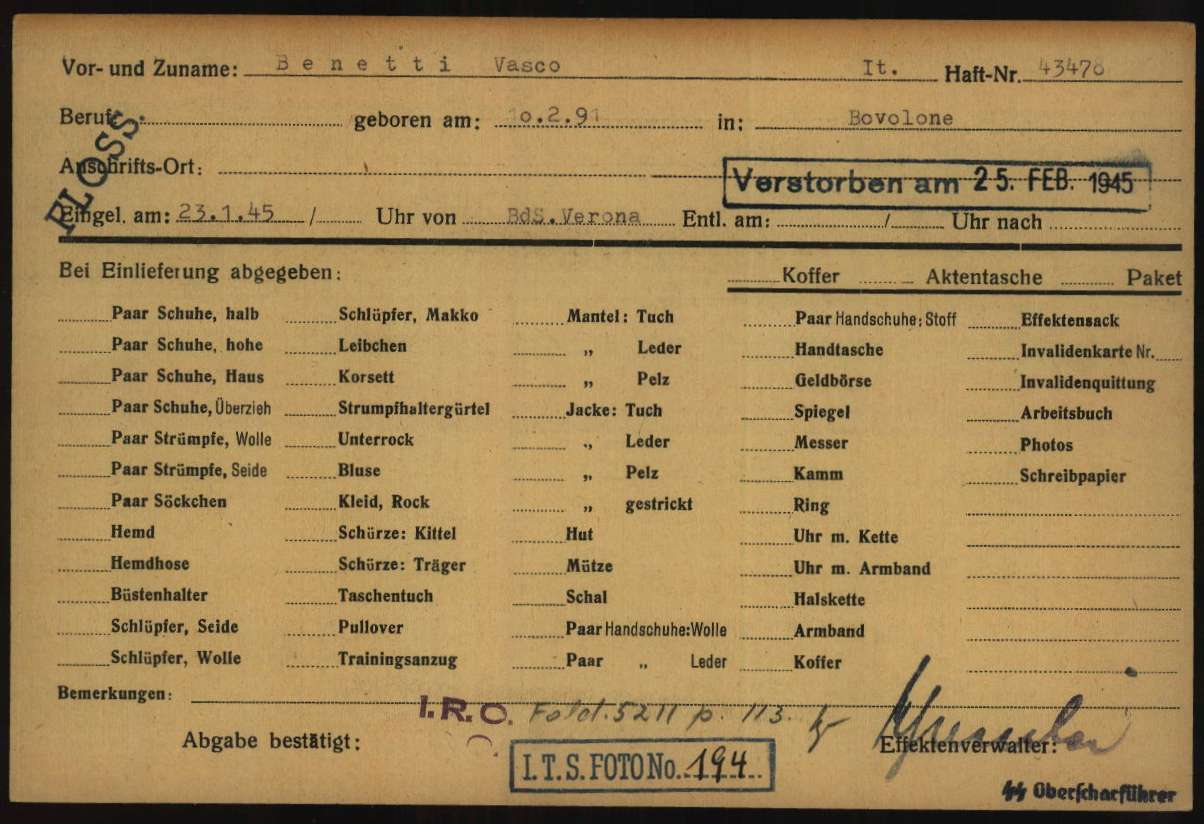 Vor- und Zuname: Benetti Vasco It. Haft-Nr. 43478
Beruf: geboren am: 10.2.91 in: Bovolone
FLOSS.
Anschrifts-Ort:
Verstorben am 25. FEB. 1945
Eingel. am: 23.1.45 / Uhr von BdS.Verona Entl. am: / Uhr nach
Bei Einlieferung abgegeben: Koffer Aktentasche Paket
Paar Schuhe, halb Schlüpfer, Makko Mantel: Tuch Paar Handschuhe: Stoff Effektensack
Paar Schuhe, hohe Leibchen „ Leder Handtasche Invalidenkarte Nr.
Paar Schuhe, Haus Korsett „ Pelz Geldbörse Invalidenquittung
Paar Schuhe, Überzieh Strumpfhaltergürtel Jacke: Tuch Spiegel Arbeitsbuch
Paar Strümpfe, Wolle Unterrock „ Leder Messer Photos
Paar Strümpfe, Seide Bluse „ Pelz Kamm Schreibpapier
Paar Söckchen Kleid, Rock „ gestrickt Ring
Hemd Schürze: Kittel Hut Uhr m. Kette
Hemdhose Schürze: Träger Mütze Uhr m. Armband
Büstenhalter Taschentuch Schal Halskette
Schlüpfer, Seide Pullover Paar Handschuhe: Wolle Armband
Schlüpfer, Wolle Trainingsanzug Paar „ Leder Koffer
Bemerkungen:
I.R.O. 5211 p. 113.
Abgabe bestätigt: Effektenverwalter:
I.T.S. FOTO No. 194
SS Oberscharführer